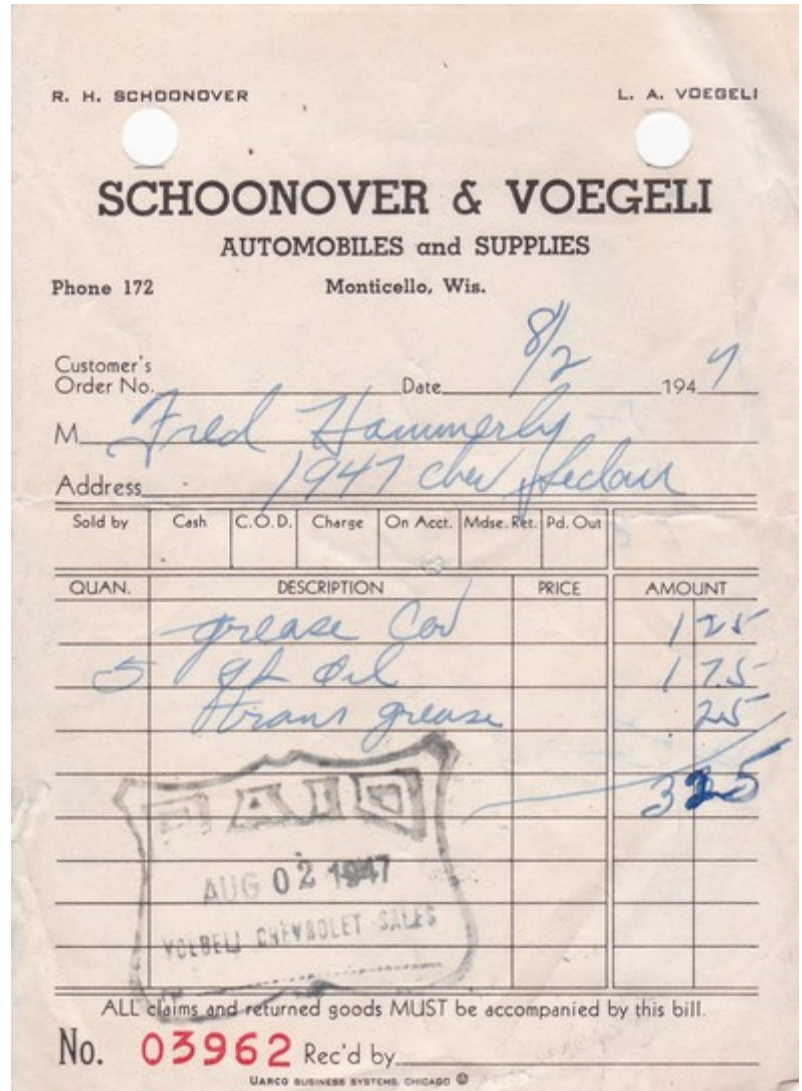 R. H. SCHOONOVER L. A. VOEGELI
SCHOONOVER & VOEGELI
AUTOMOBILES and SUPPLIES
Phone 172 Monticello, Wis.
Customer's
Order No. Date 8/2 1947
M Fred Hammerly
Address 1947 Chev Fleetline
Sold by Cash C.O.D. Charge On Acct. Mdse. Ret. Pd. Out
QUAN. DESCRIPTION PRICE AMOUNT
grease Car 1 25
5 qt Oil 1 75
trans grease 25
3 25
PAID
AUG 02 1947
VOEGELI CHEVROLET SALES
ALL claims and returned goods MUST be accompanied by this bill.
No. 03962 Rec'd by
UARCO BUSINESS SYSTEMS CHICAGO